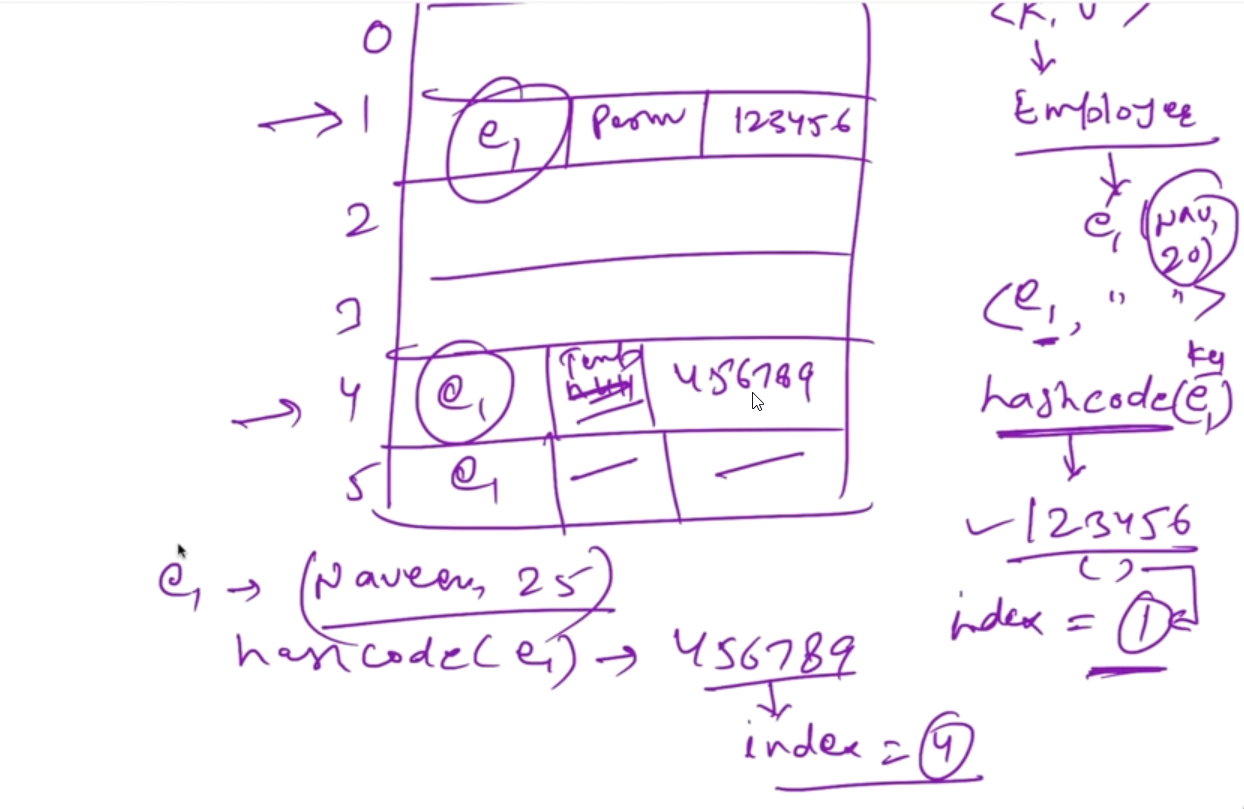 0
1 e1 Perm 123456
2
3
4 e1 Temp 456789
5 e1 — —
e1 → (Naveen, 25)
hashcode(e1) → 456789
index = 4
<K, V>
Employee
e1 (NAV,
20)
<e1, " ">
key
hashcode(e1)
123456
( )
index = 1